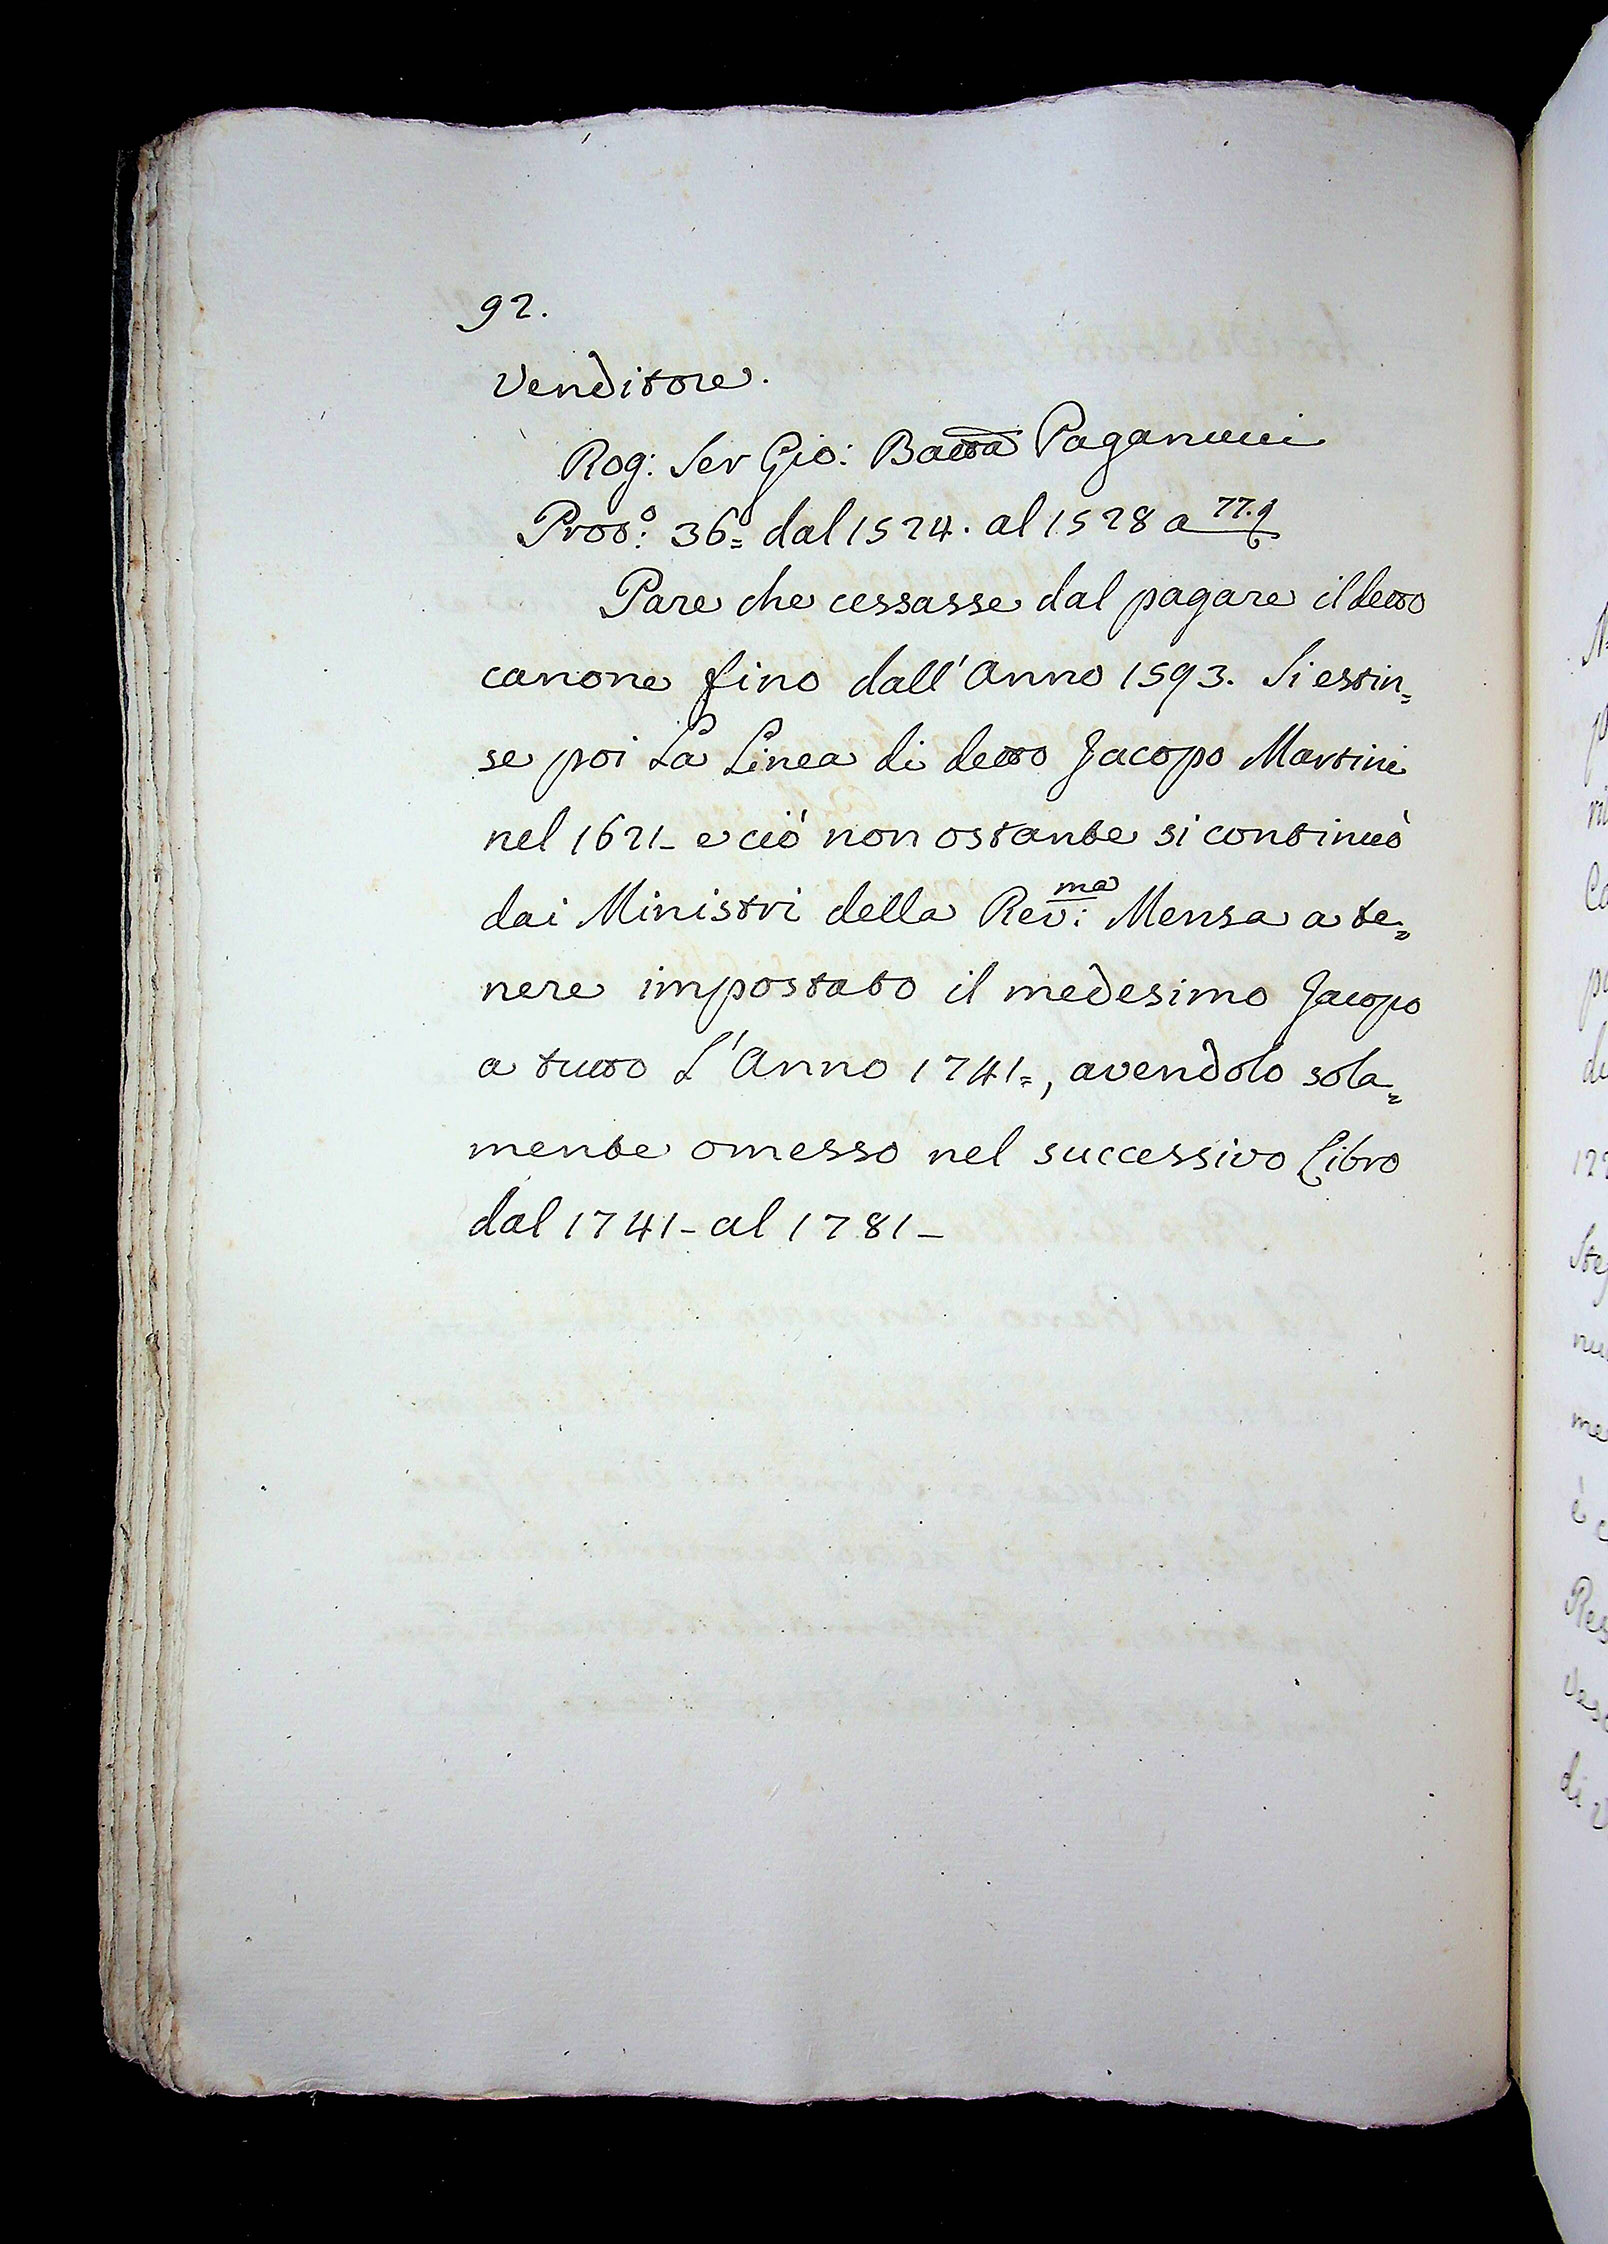 92.
Venditore.
Rog: Ser Gio: Batta Paganucci
Prot.o 36= dal 1524. al 1528 a 77.
Pare che cessasse dal pagare il detto
canone fino dall'Anno 1593. Si estin=
se poi La Linea di detto Jacopo Martini
nel 1621_ e ciò non ostante si continuò
dai Ministri della Rev:ma Mensa a te=
nere impostato il medesimo Jacopo
a tutto L'Anno 1741=, avendolo sola=
mente omesso nel successivo Libro
dal 1741_ al 1781_